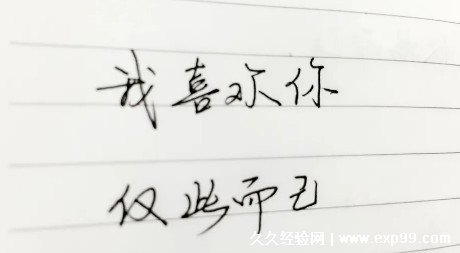 我喜欢你
仅此而已
久久经验网 | www.exp99.com